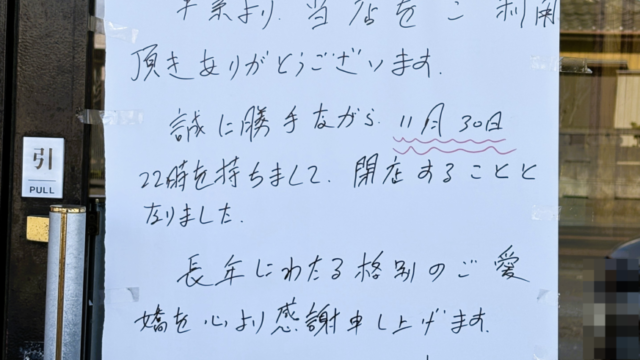 平素より、当店をご利用
頂きありがとうございます。
誠に勝手ながら、11月30日
22時を持ちまして、閉店することと
なりました。
長年にわたる格別のご愛
嬌を心より感謝申し上げます。
引
PULL